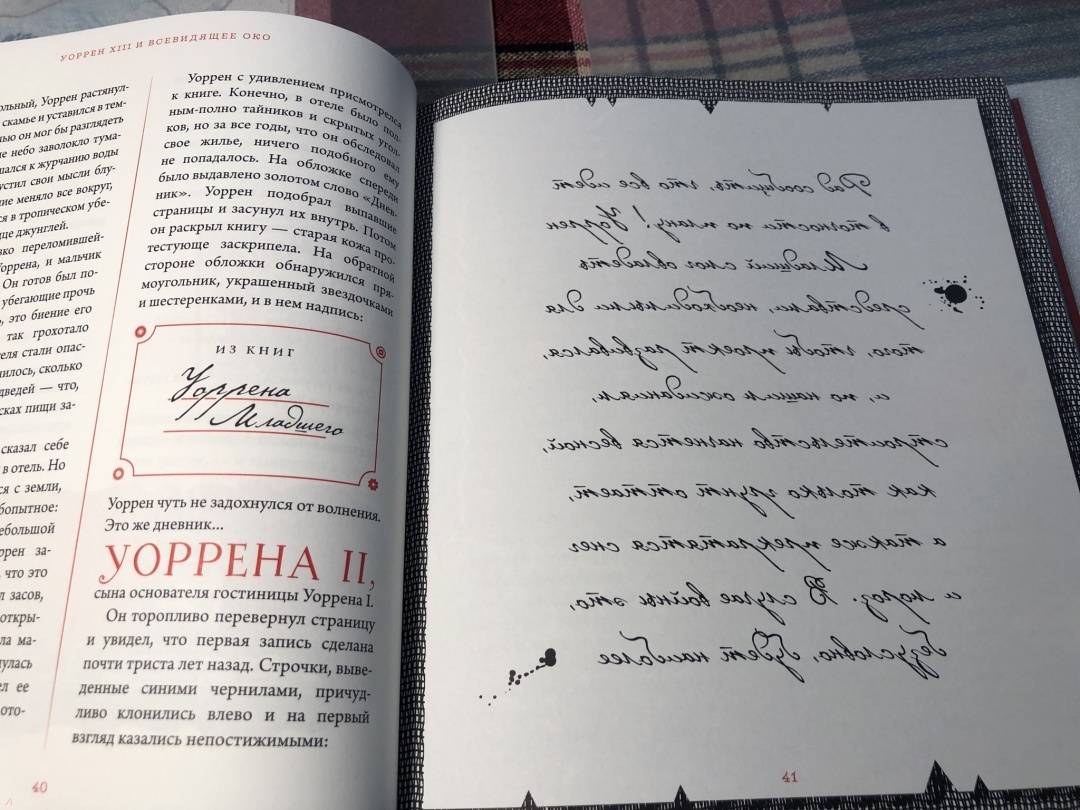 УОРРЕН XIII И ВСЕВИДЯЩЕЕ ОКО
ольный, Уоррен растянул-
скамье и уставился в тем-
ью он мог бы разглядеть
е небо заволокло тума-
шался к журчанию воды
устил свои мысли блу-
ние меняло все вокруг,
ся в тропическом убе-
це джунглей.
ко переломившей-
Уоррена, и мальчик
Он готов был по-
убегающие прочь
ь, это биение его
так грохотало
еля стали опас-
нилось, сколько
дведей — что,
сках пищи за-
сказал себе
в отель. Но
ся с земли,
бопытное:
небольшой
ррен за-
что это
л засов,
откры-
ла ма-
нулась
ел ее
ото-
Уоррен с удивлением присмотрелся
к книге. Конечно, в отеле было пол-
ным-полно тайников и скрытых угол-
ков, но за все годы, что он обследовал
свое жилье, ничего подобного ему
не попадалось. На обложке спереди
было выдавлено золотом слово «Днев-
ник». Уоррен подобрал выпавшие
страницы и засунул их внутрь. Потом
он раскрыл книгу — старая кожа про-
тестующе заскрипела. На обратной
стороне обложки обнаружился пря-
моугольник, украшенный звездочками
и шестеренками, и в нем надпись:
ИЗ КНИГ
Уоррена
Младшего
Уоррен чуть не задохнулся от волнения.
Это же дневник...
УОРРЕНА II,
сына основателя гостиницы Уоррена I.
Он торопливо перевернул страницу
и увидел, что первая запись сделана
почти триста лет назад. Строчки, выве-
денные синими чернилами, причуд-
ливо клонились влево и на первый
взгляд казались непостижимыми:
40
Рад сообщить, что все идет
в точности по плану! Уоррен
Младший смог овладеть
средствами, необходимыми для
того, чтобы проект развивался,
и, по нашим ожиданиям,
строительство начнется весной,
как только грунт оттает,
а также прекратятся снег
и мороз. В случае войны это,
безусловно, будет наиболее
41